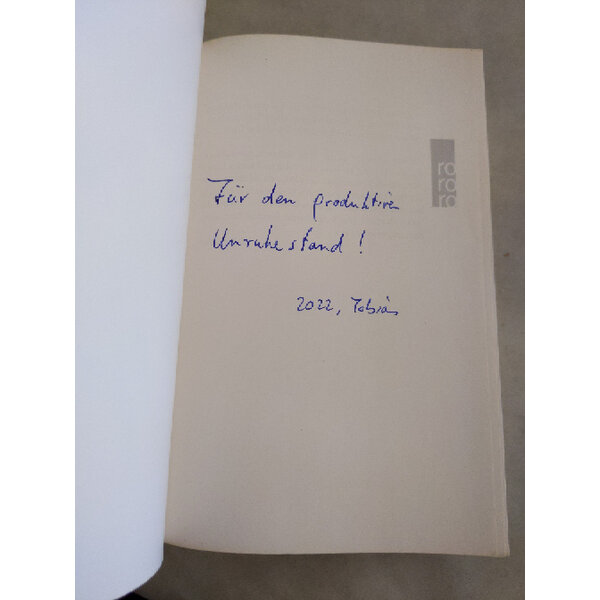 ro
ro
ro
Für den produktiven
Unruhestand!
2022, Tobias